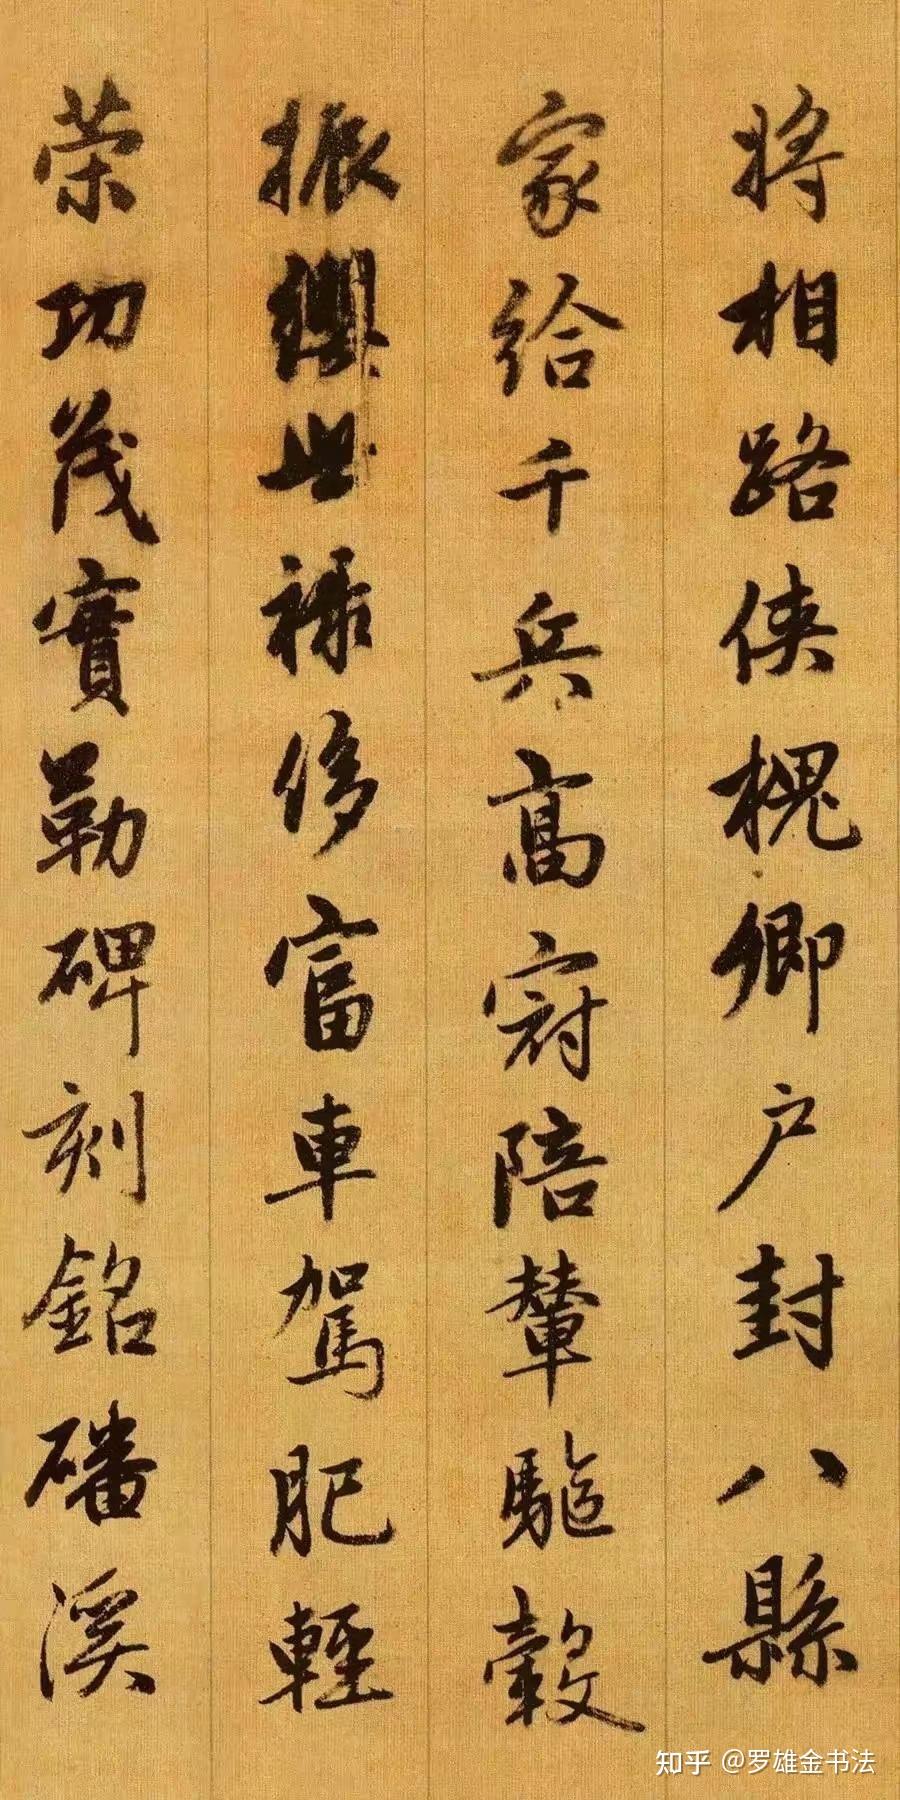 將相路侠槐卿户封八縣
家給千兵高冠陪輦驅轂
振纓世祿侈富車駕肥輕
荣功茂實勒碑刻銘磻溪
知乎 @罗雄金书法